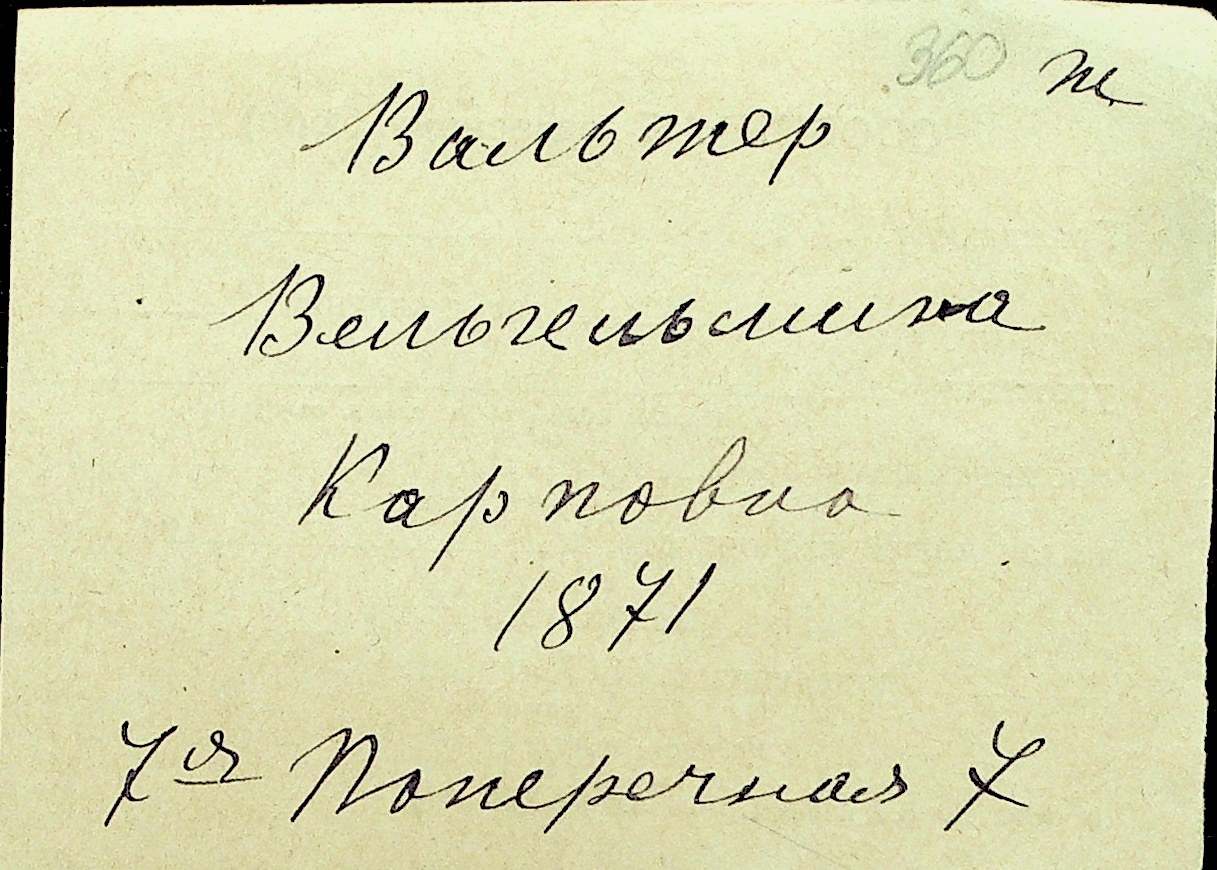 360 ж
Вальтер
Вельгельмина
Карповна
1871
7ая Поперечная 7